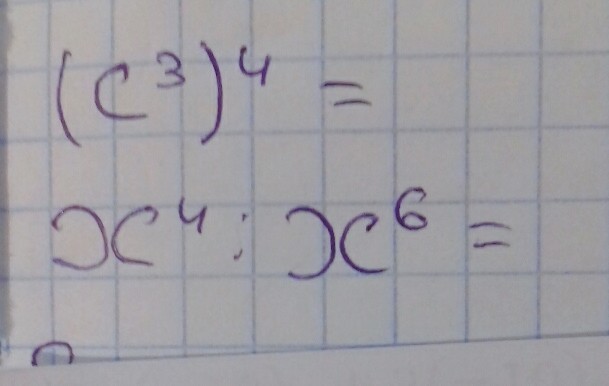 (c³)⁴ =
x⁴ : x⁶ =